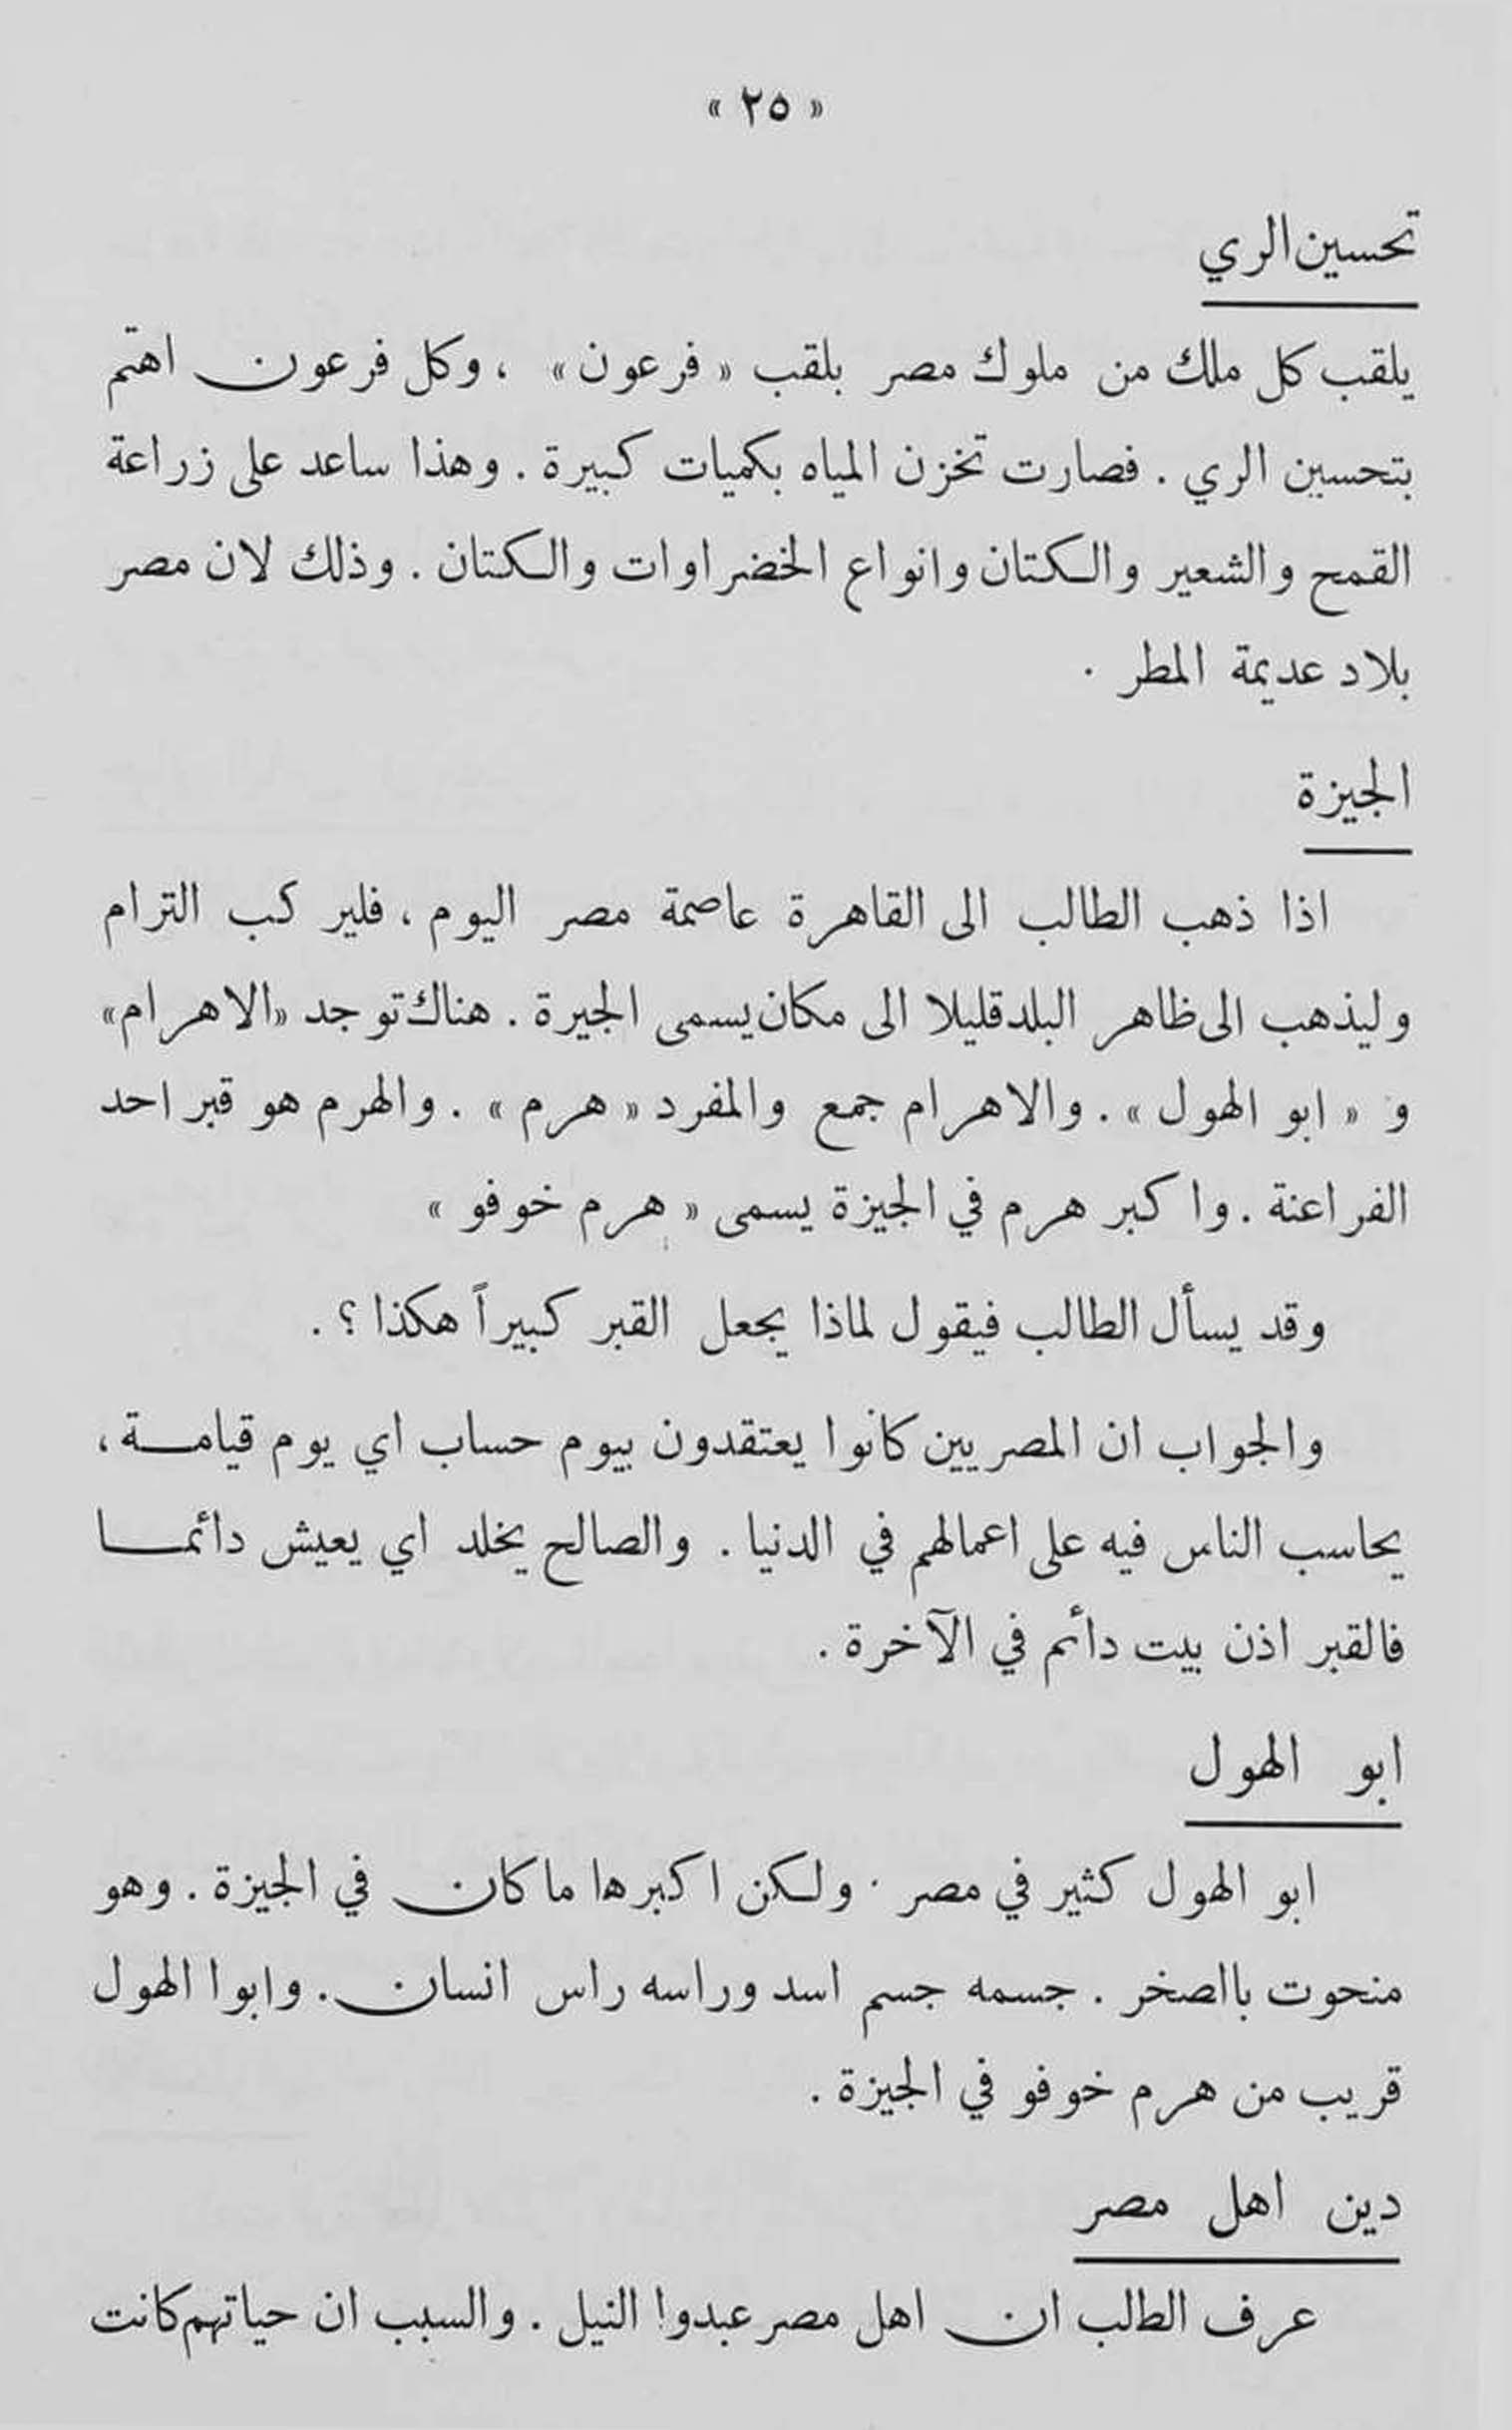 « ٢٥ »
تحسين الري
يلقب كل ملك من ملوك مصر بلقب « فرعون » ، وكل فرعون اهتم
بتحسين الري . فصارت تخزن المياه بكميات كبيرة . وهذا ساعد على زراعة
القمح والشعير والكتان وانواع الخضراوات والكتان . وذلك لان مصر
بلاد عديمة المطر .
الجيزة
اذا ذهب الطالب الى القاهرة عاصمة مصر اليوم ، فليركب الترام
وليذهب الى ظاهر البلد قليلا الى مكان يسمى الجيرة . هناك توجد «الاهرام»
و « ابو الهول » . والاهرام جمع والمفرد « هرم » . والهرم هو قبر احد
الفراعنة . واكبر هرم في الجيزة يسمى « هرم خوفو »
وقد يسأل الطالب فيقول لماذا يجعل القبر كبيراً هكذا ؟ .
والجواب ان المصريين كانوا يعتقدون بيوم حساب اي يوم قيامـــة ،
يحاسب الناس فيه على اعمالهم في الدنيا . والصالح يخلد اي يعيش دائمـــا
فالقبر اذن بيت دائم في الآخرة .
ابو الهول
ابو الهول كثير في مصر . ولكن اكبرها ما كان في الجيزة . وهو
منحوت باالصخر . جسمه جسم اسد وراسه راس انسان . وابوا الهول
قريب من هرم خوفو في الجيزة .
دين اهل مصر
عرف الطالب ان اهل مصر عبدوا النيل . والسبب ان حياتهم كانت